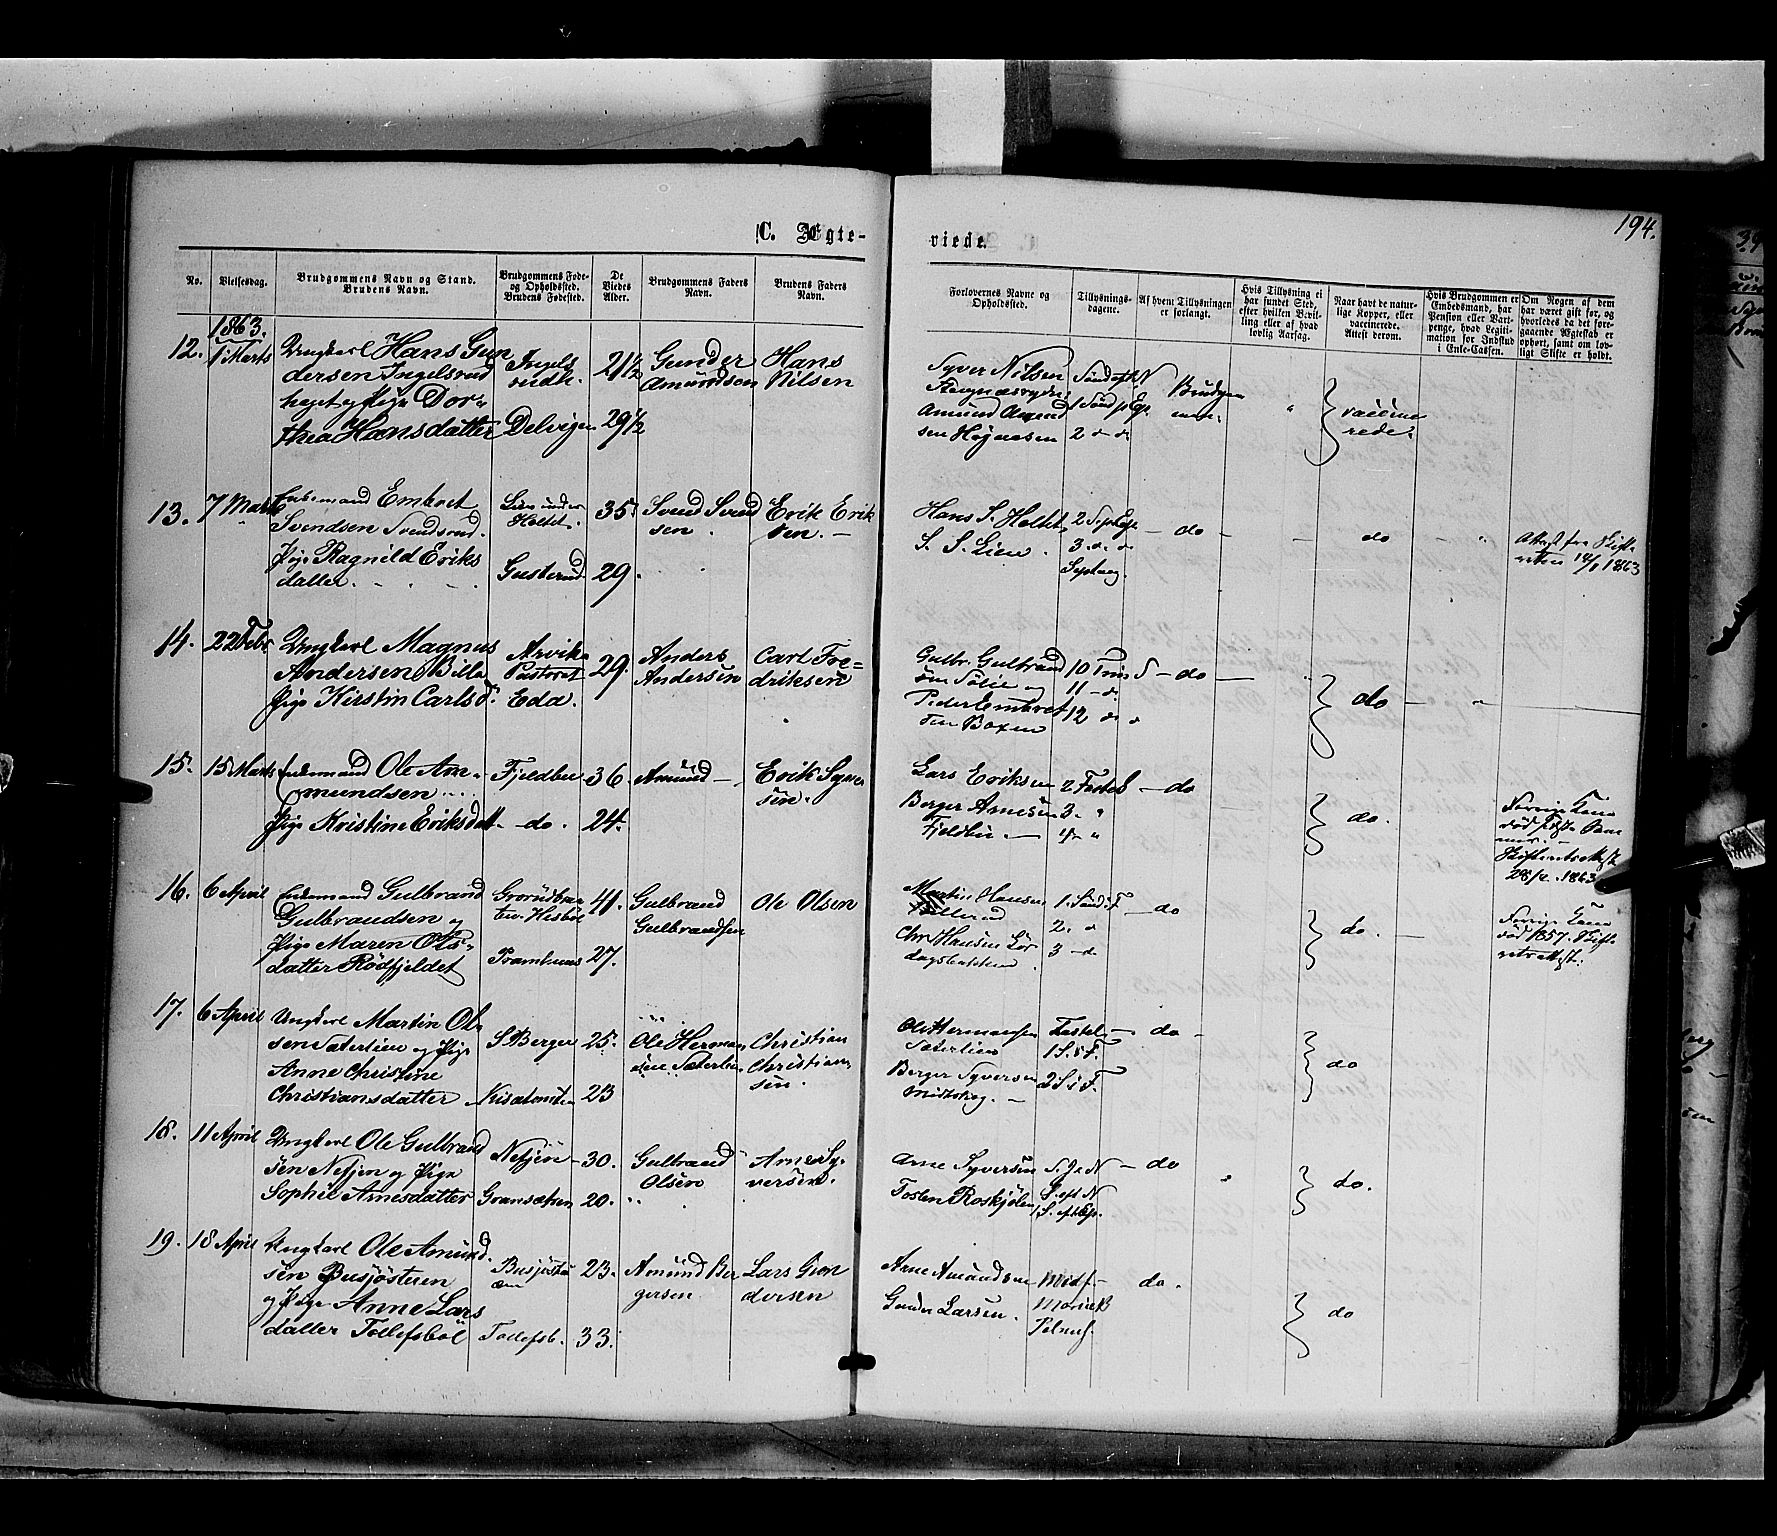 194.
C. Ægte-
viede.
No.
Vielsesdag.
Brudgommens Navn og Stand.
Brudens Navn.
Brudgommens Føde-
og Opholdssted.
Brudens Fødested.
De
Viedes
Alder.
Brudgommens Faders
Navn.
Brudens Faders
Navn.
Forlovernes Navne og
Opholdssted.
Tillysnings-
dagene.
Af hvem Tillysningen
er forlangt.
Hvis Tillysning ei
har fundet Sted,
efter hvilken Bevil-
ling eller af hvad
lovlig Aarsag.
Naar havt de natur-
lige Kopper, eller
vaccinerede.
Attest derom.
Hvis Brudgommen er
Embedsmand, har
Pension eller Vart-
penge, hvad Legiti-
mation for Indskud
i Enke-Cassen.
Om Nogen af dem
har været gift før, og
hvorledes da det fore-
gaaende Ægteskab er
ophørt, samt om lov-
ligt Skifte er holdt.
1863.
12. 1 Marts Ungkarl Hans Gun
dersen Ingelsrud
haget og Pige Dor-
thea Hansdatter
Ingels
rudh.
Delvigen
21 1/2
29 1/2
Gunder
Amundsen
Hans
Nilsen
Syver Nilsen
Amund Amund
sen Høgnesen
2 d d
Brudgom
men
vaccine
rede.
13. 7 Marts Enkemand Embret
Svendsen Svendsrud.
Pige Ragnild Eriks
datter
Lien under
Holtet.
Gusterud
35.
29.
Svend Svend
sen.
Erik Erik
sen. —
Hans S. Holtet
S. S. Lien.
3. d. d
do
do
Attest fra Skift-
retten 14/1 1863
14. 22 Febr Ungkarl Magnus
Andersen Billa
Pige Kirstin Carlsd.
Arvika
Pastorat
Eda.
29.
Anders
Andersen
Carl Fre=
driksen
Gulbr. Gulbrand
sen Solie og
Peder Embret
sen Boxen
10 Trin S
11 - d
12 d d
do
do
15. 15 Marts Enkemand Ole Am-
mundsen
Pige Kristine Eriksdatt.
Fjeldbu
do.
36.
24.
Amund —
Erik Syver
sen.
Lars Eriksen
Berger Arnesen
Fjeldbu. —
2 Fastel S
3. "
4. "
do
do.
Forrige Kone
død
28/2. 1863
16. 6 April Enkemand Gulbrand
Gulbrandsen og
Pige Maren Ols-
datter Rødfjeldet
Pramhuus
41.
27.
Gulbrand
Gulbrandsen
Ole Olsen
Martin Hansen
Chr Hansen Lør
dagsbakken
1. Sønd i F
2. d
3 - d
do
do.
Forrige Kone
død 1857. Skift-
retsattest.
17. 6 April Ungkarl Martin Ol-
sen Sæterlien og Pige
Anne Christine
Christiansdatter
S Berger
25.
23
Ole Herman
sen Sæterlien
Christian
Christian
sen.
Ole Hermansen
Sæterlien
Berger Syversen
Midtskog. —
Fastel.
1 S. i F.
2 S i F.
do
do
18. 11 April Ungkarl Ole Gulbrand
sen Nesjen og Pige
Sophie Arnesdatter
Nesjen
Gransætren
30.
20.
Gulbrand
Olsen
Arne Sy-
versen.
Arne Syversen
Tosten Roskjølen
S. eft N
1 S. eft Ep.
do
do.
19. 18 April Ungkarl Ole Amund
sen Busjøsteren
og Pige Anne Lars
datter Tollefsböl
Tollefsb.
23.
33.
Amund Ber
gersen
Lars Gun
dersen
Arne Amundsen
Gunder Larsen.
Midf.
Mariæ B
Palmes.
do.
do